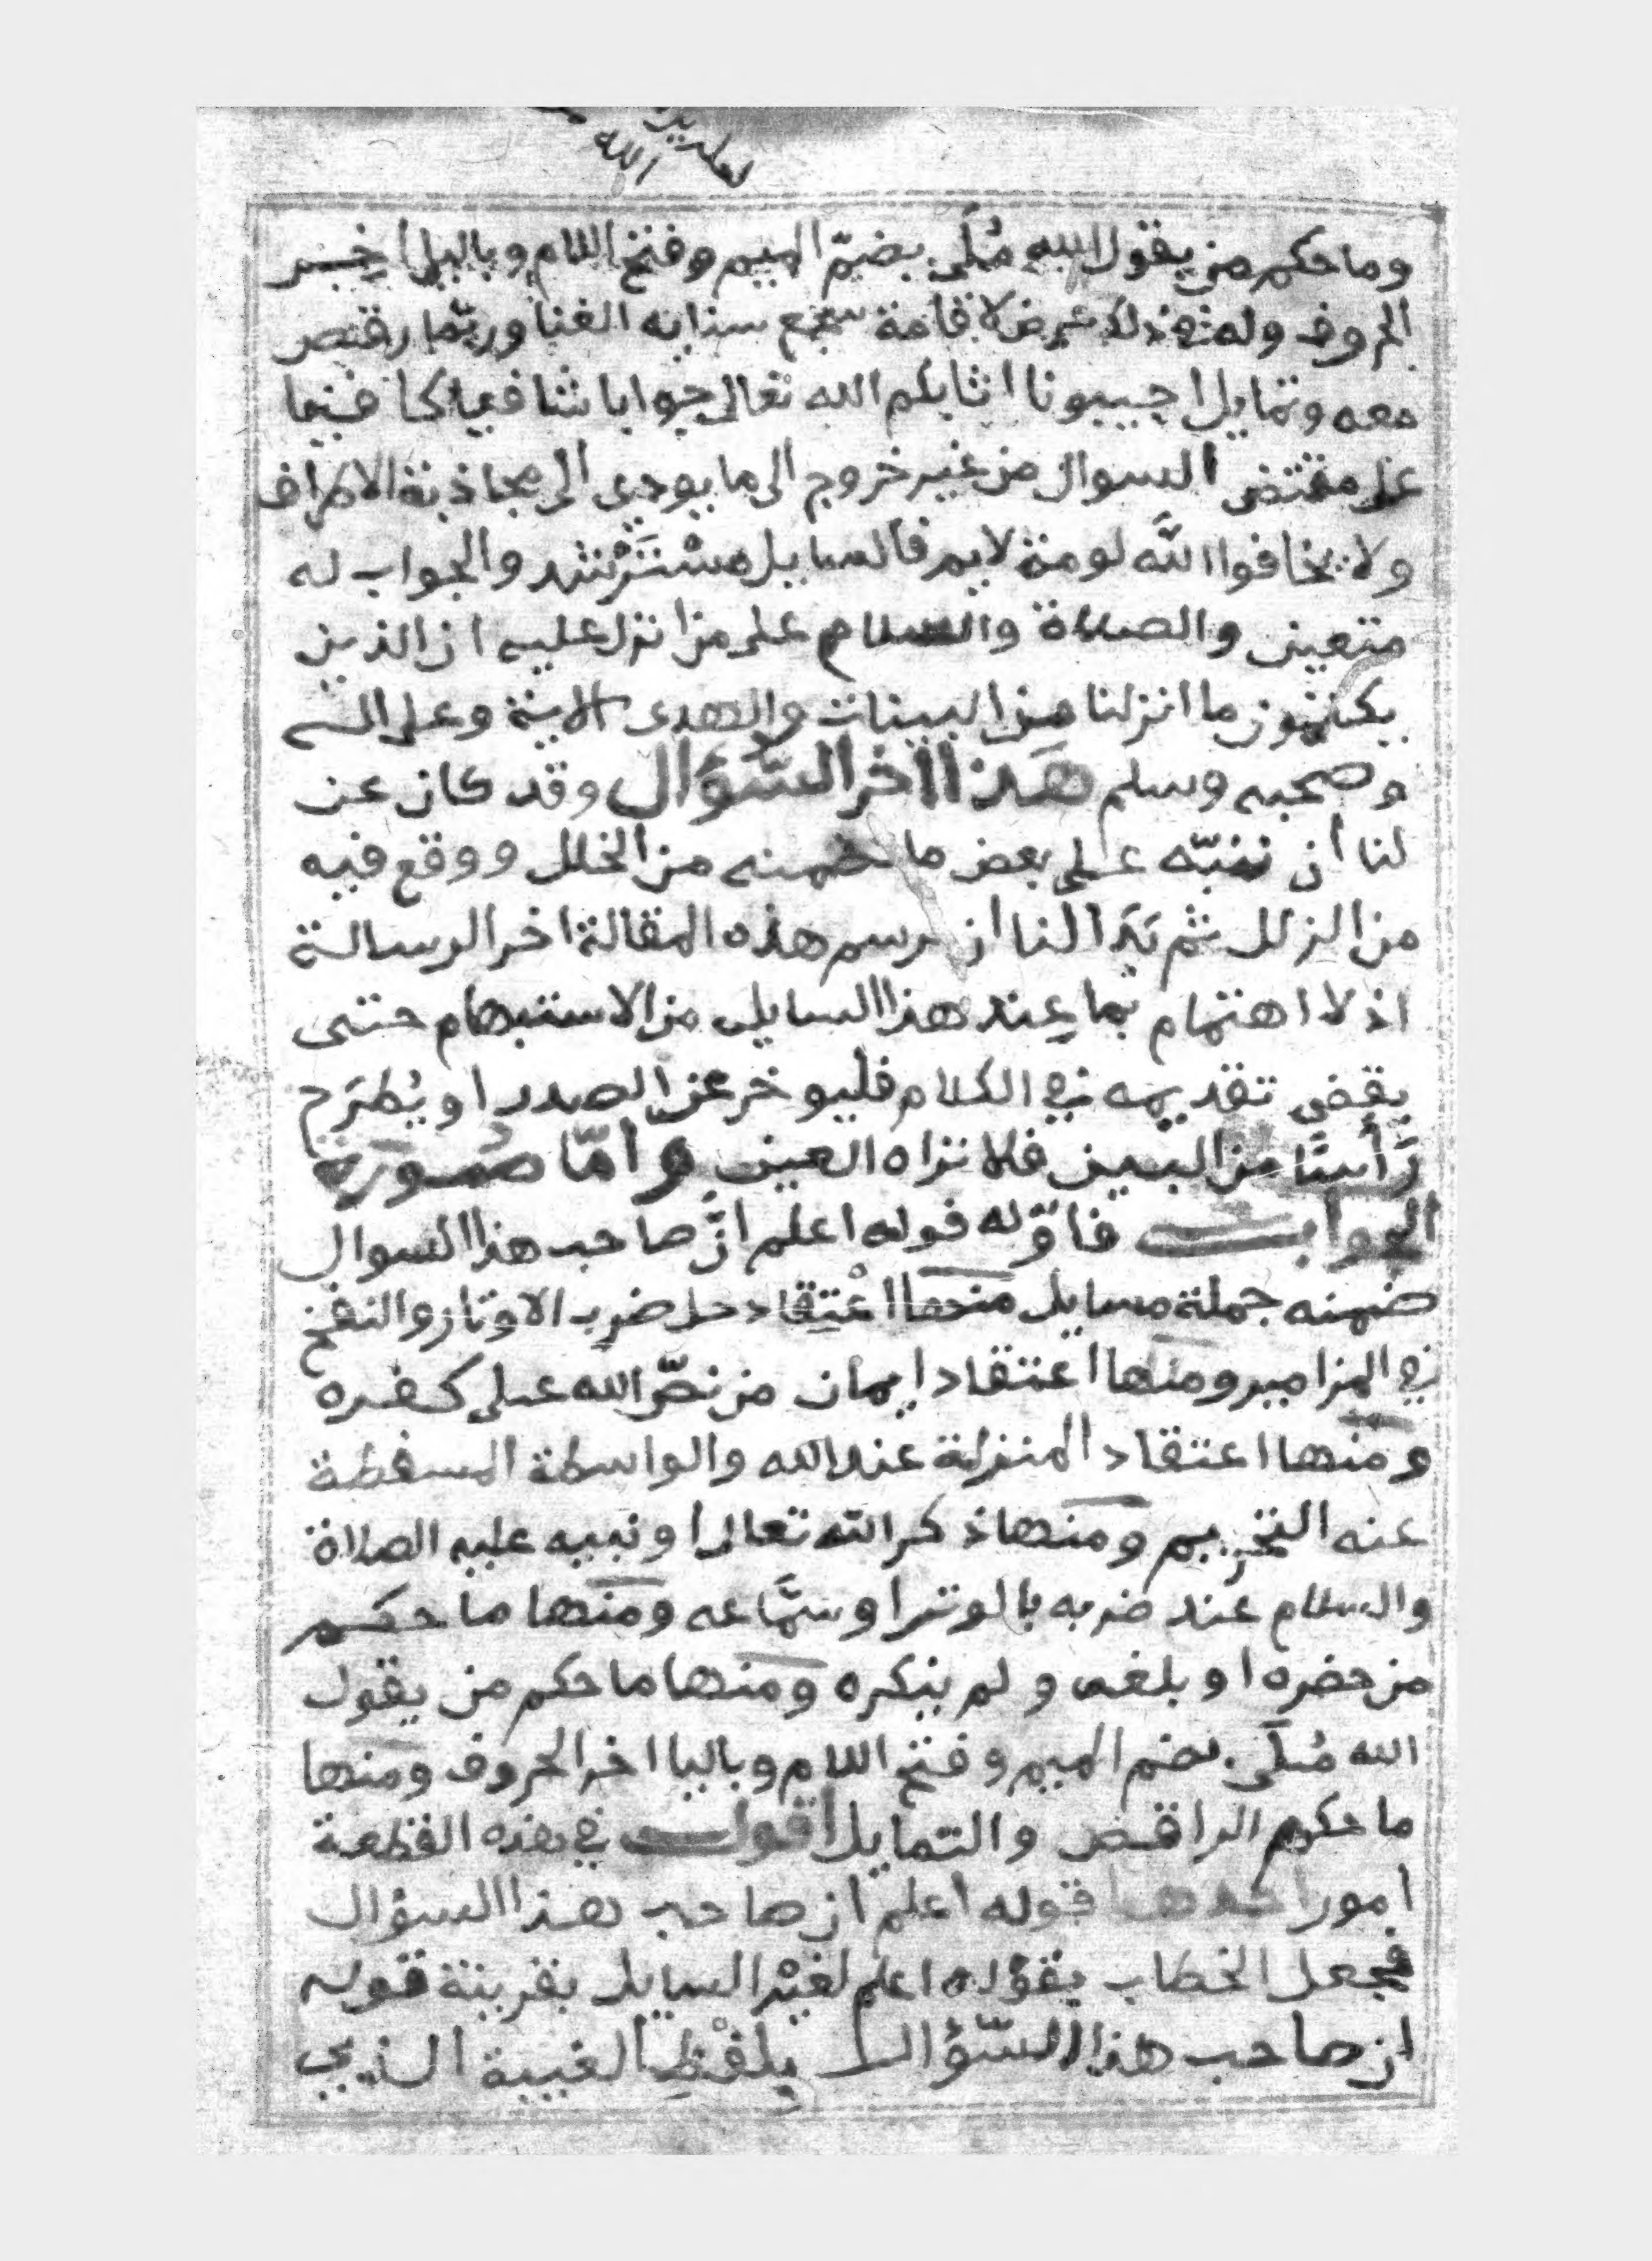 وما حكم من يقول الله مُلَى بضمّ الميم وفتح اللام وباليا اخر
الحروف وله في ذلك غرض لاقامة سجع سنانه الغنا وربّما رقص
معه وتمايل اجيبونا اثابكم الله تعالى جوابا شافيا كافيا
على مقتضى السوال من غير خروج الى ما يودي الى مجاذبة الاطراف
ولا تخافوا اللّه لومة لايم فالسايل مسْتَرْشد والجواب له
متعين والصلاة والسلام على من انزل عليه ان الذين
يكتمون ما انزلنا من البينات والهدى الاية وعلى اله
وصحبه وسلم هَذا اخر السّؤال وقد كان عن
لنا ان ننبّه على بعض ما ضمنه من الخلل ووقع فيه
من الزلل ثم بَدَا لنا ان نرسم هذه المقالة اخر الرسالة
اذ لا اهتمام بما عند هذا السايل من الاستبهام حتى
يقضى تقديمه في الكلام فليوخر عن الصدر او يُطرَح
رَأسًا من البين فلا تراه العين وامّا صُورة
الجواب فاوّله قوله اعلم انَّ صاحب هذا السوال
ضمنه جملة مسايل منها اعْتِقاد حل ضرب الاوتار والنفخ
في المزامير ومنها اعتقاد ايمان من نصّ الله على كفره
ومنها اعتقاد المنزلة عند الله والواسطة المسقطة
عنه التحريم ومنها ذكر الله تعالى او نبيه عليه الصلاة
والسلام عند ضربه بالوتر او سمَّاعه ومنها ما حكم
من حضره او بلغه ولم ينكره ومنها ما حكم من يقول
الله مُلَى بضم الميم وفتح اللام وباليا اخر الحروف ومنها
ما حكم الراقص والتمايل اقول في هذه القطعة
امور احدها قوله اعلم ان صاحب هذا السؤال
فجعل الخطاب بقوله اعلم لغيْر السايل بقرينة قوله
ان صاحب هذا السّؤال بلفْظِ الغيبة الذي